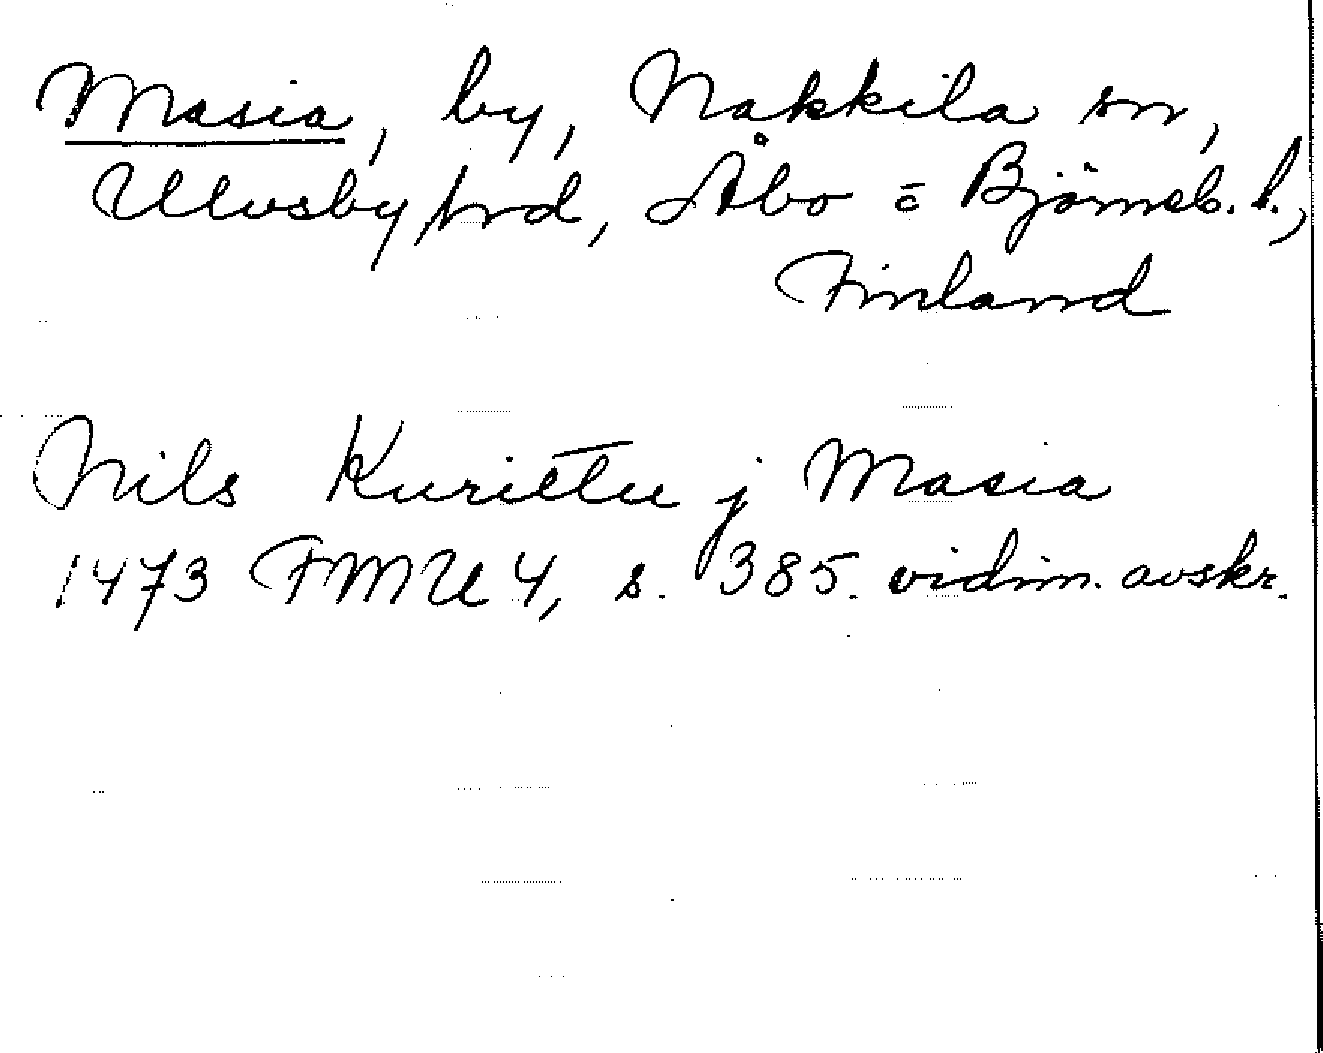 Masia, by, Nakkila sn,
Ulvsby hrd, Åbo = Björneb. l.,
Finland
Nils Kurittu j Masia
1473 FMU 4, s. 385. vidim. avskr.